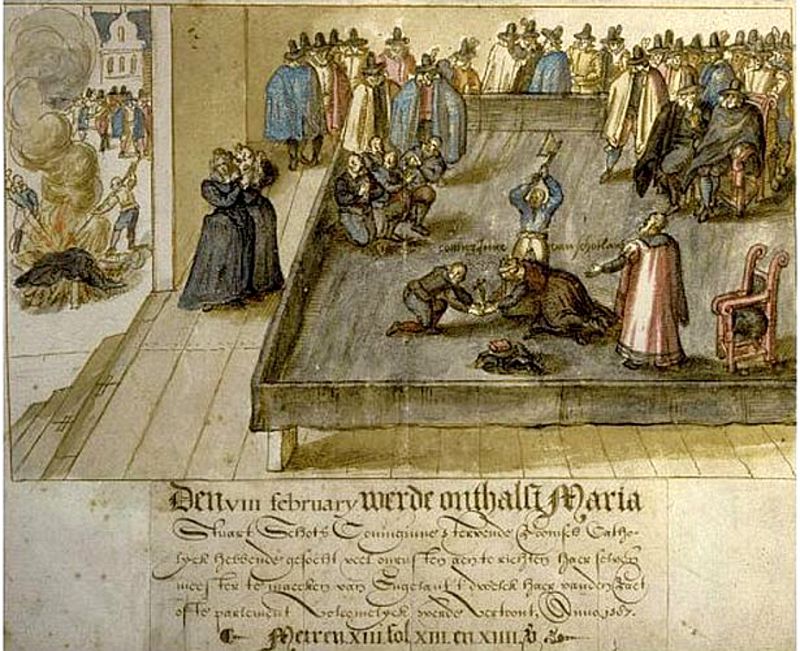 coninginne van schotlan
Den VIII february werde onthalst Maria
Stuart Schots Coninginne stervende Roomsch Catho-
lyck hebbende gesocht veel onrusten aen te richten haer selven
meester te maecken van Engelant t'welck haer vanden Raet
ofte parlement Volcomelyck werde Vertoont, Anno 1587.
Meteren XIII fol XIII en XIIII